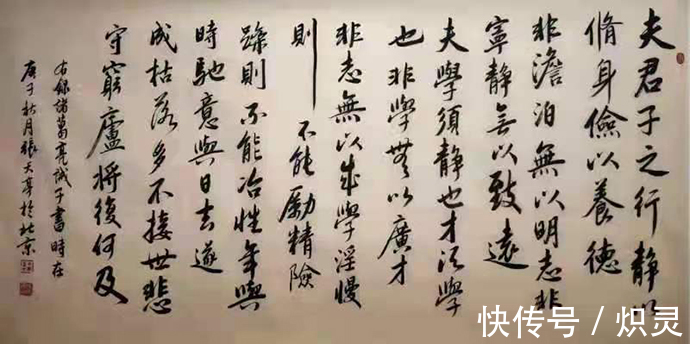 夫君子之行靜以
脩身儉以養德
非澹泊無以明志非
寧靜無以致遠
夫學須靜也才須學
也非學無以廣才
非志無以成學淫慢
則不能勵精險
躁則不能冶性年與
時馳意與日去遂
成枯落多不接世悲
守窮廬將復何及
右錄諸葛亮誡子書時在
庚子秋月於北京
快传号 / 炽灵